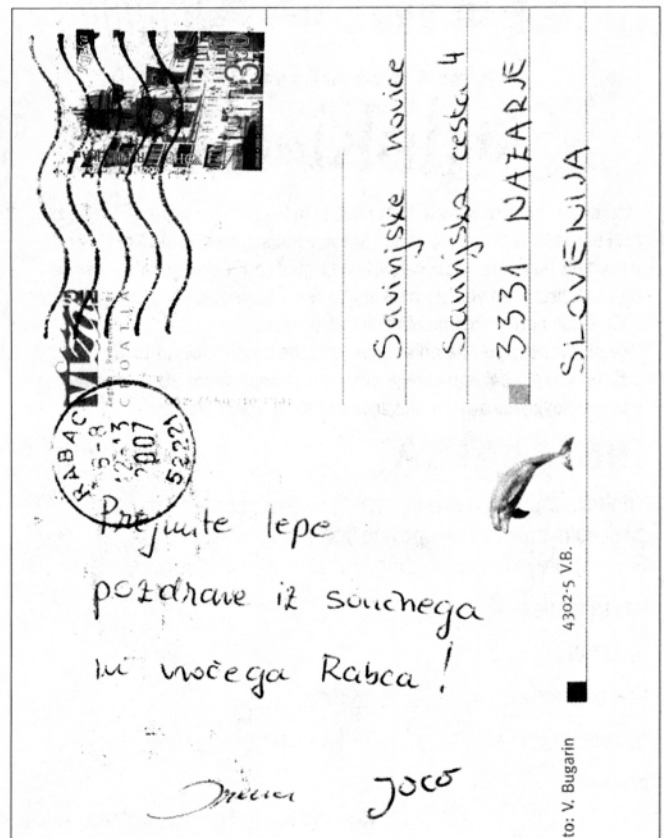 3.50
CROATIA
RABAC
6-8
12-13
2007
52221
Savinjske novice
Savinjska cesta 4
3331 NAZARJE
SLOVENIJA
Prejmite lepe
pozdrave iz sončnega
in vročega Rabca!
Joco
4302-5 V.B.
to: V. Bugarin